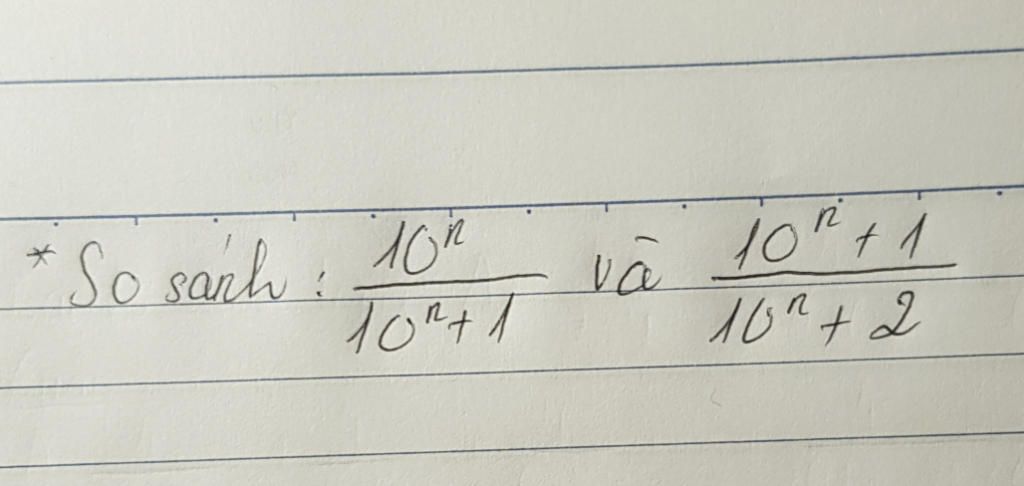 * So sánh : \frac{10^n}{10^n + 1} và \frac{10^n + 1}{10^n + 2}